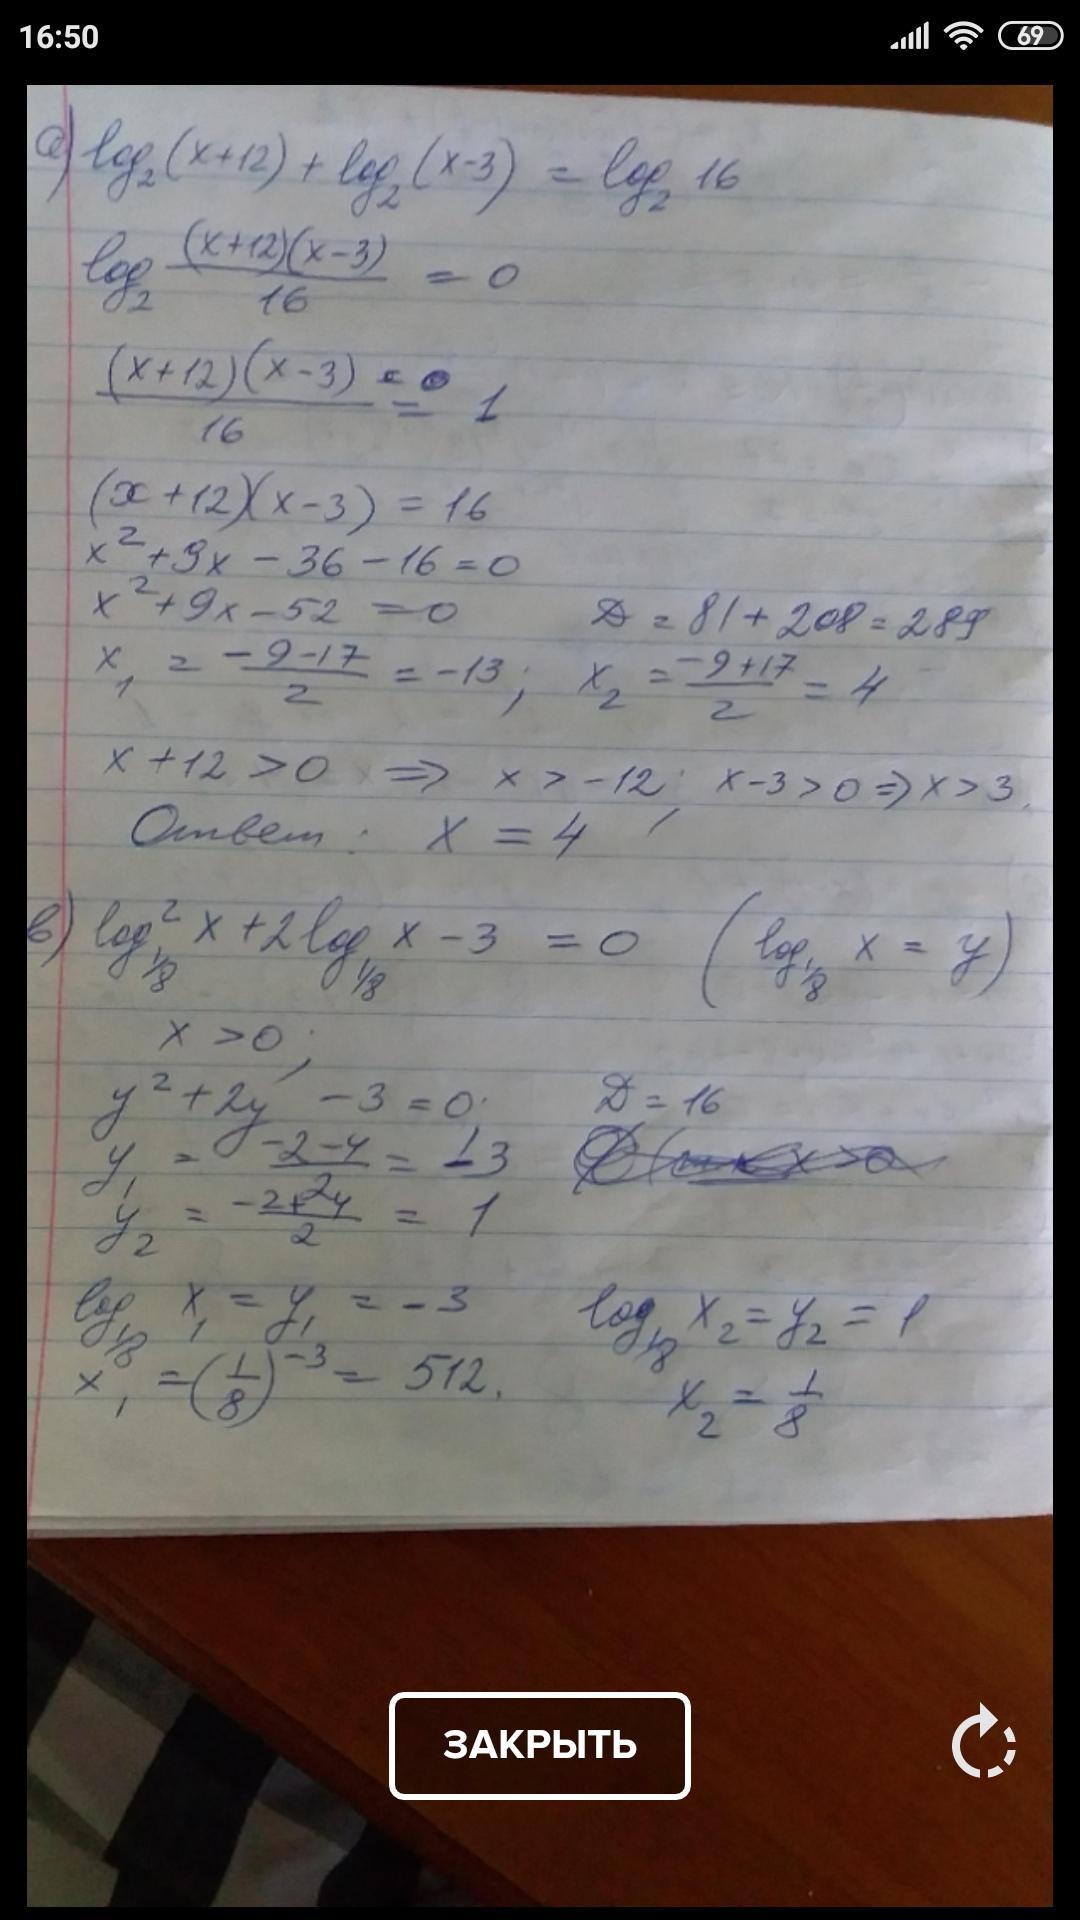 16:50
69
а) log₂(x+12) + log₂(x-3) = log₂ 16
log₂ (x+12)(x-3)/16 = 0
(x+12)(x-3)/16 = 1
(x+12)(x-3) = 16
x² + 9x - 36 - 16 = 0
x² + 9x - 52 = 0 D = 81 + 208 = 289
x₁ = (-9-17)/2 = -13; x₂ = (-9+17)/2 = 4
x + 12 > 0 ⇒ x > -12; x-3 > 0 ⇒ x > 3.
Ответ: x = 4
в) log²_{1/8} x + 2 log_{1/8} x - 3 = 0 (log_{1/8} x = y)
x > 0;
y² + 2y - 3 = 0; D = 16
y₁ = (-2-4)/2 = -3
y₂ = (-2+4)/2 = 1
log_{1/8} x₁ = y₁ = -3 log_{1/8} x₂ = y₂ = 1
x₁ = (1/8)⁻³ = 512. x₂ = 1/8
ЗАКРЫТЬ